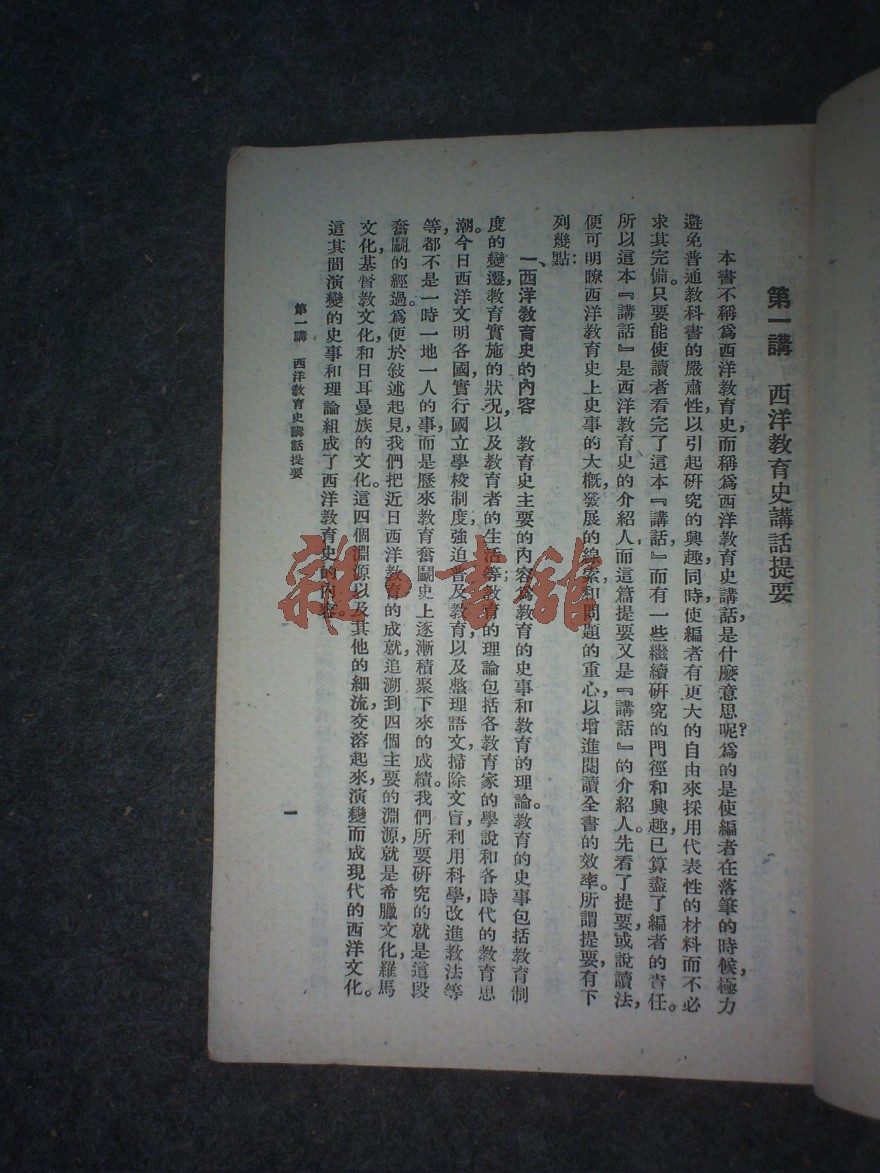 第一講　西洋教育史講話提要
本書不稱爲西洋教育史，而稱爲西洋教育史講話，是什麼意思呢？爲的是使編者在落筆的時候，極力
避免普通教科書的嚴肅性，以引起研究的興趣，同時，使編者有更大的自由來採用代表性的材料而不必
求其完備。只要能使讀者看完了這本『講話』而有一些繼續研究的門徑和興趣，已算盡了編者的責任。
所以這本『講話』是西洋教育史的介紹人，而這篇提要又是『講話』的介紹人。先看了提要，或說讀法，
便可明瞭西洋教育史上史事的大概，發展的線索和問題的重心，以增進閱讀全書的效率。所謂提要，有下
列幾點：
一、西洋教育史的內容　教育史主要的內容，爲教育的史事和教育的理論。教育的史事包括教育制
度的變遷，教育實施的狀況，以及教育者的生活等；教育的理論包括各教育家的學說和各時代的教育思
潮。今日西洋文明各國，實行國立學校制度，強迫普及教育，以及整理語文，掃除文盲，利用科學，改進教法等
等，都不是一時一地一人的事，而是歷來教育奮鬭史上逐漸積聚下來的成績。我們所要研究的就是這段
奮鬭的經過。爲便於敍述起見，我們把近日西洋教育的成就，追溯到四個主要的淵源，就是希臘文化，羅馬
文化，基督教文化和日耳曼族的文化。這四個淵源以及其他的細流，交溶起來，演變而成現代的西洋文化。
這其間演變的史事和理論組成了西洋教育史的內容。
第一講　西洋教育史講話提要
一
雜·書館